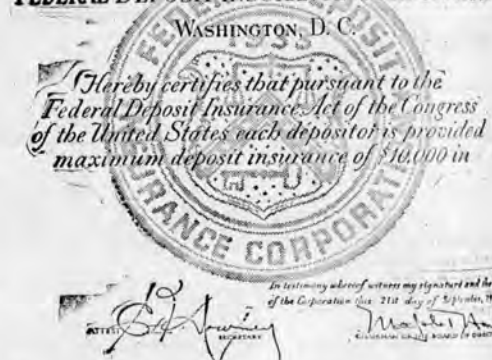 WASHINGTON, D. C.
FEDERAL DEPOSIT INSURANCE CORPORATION
1933
Hereby certifies that pursuant to the
Federal Deposit Insurance Act of the Congress
of the United States each depositor is provided
maximum deposit insurance of $10,000 in
In testimony whereof witness my signature and the
of the Corporation this 21st day of September,
ATTEST
SECRETARY
CHAIRMAN OF THE BOARD OF